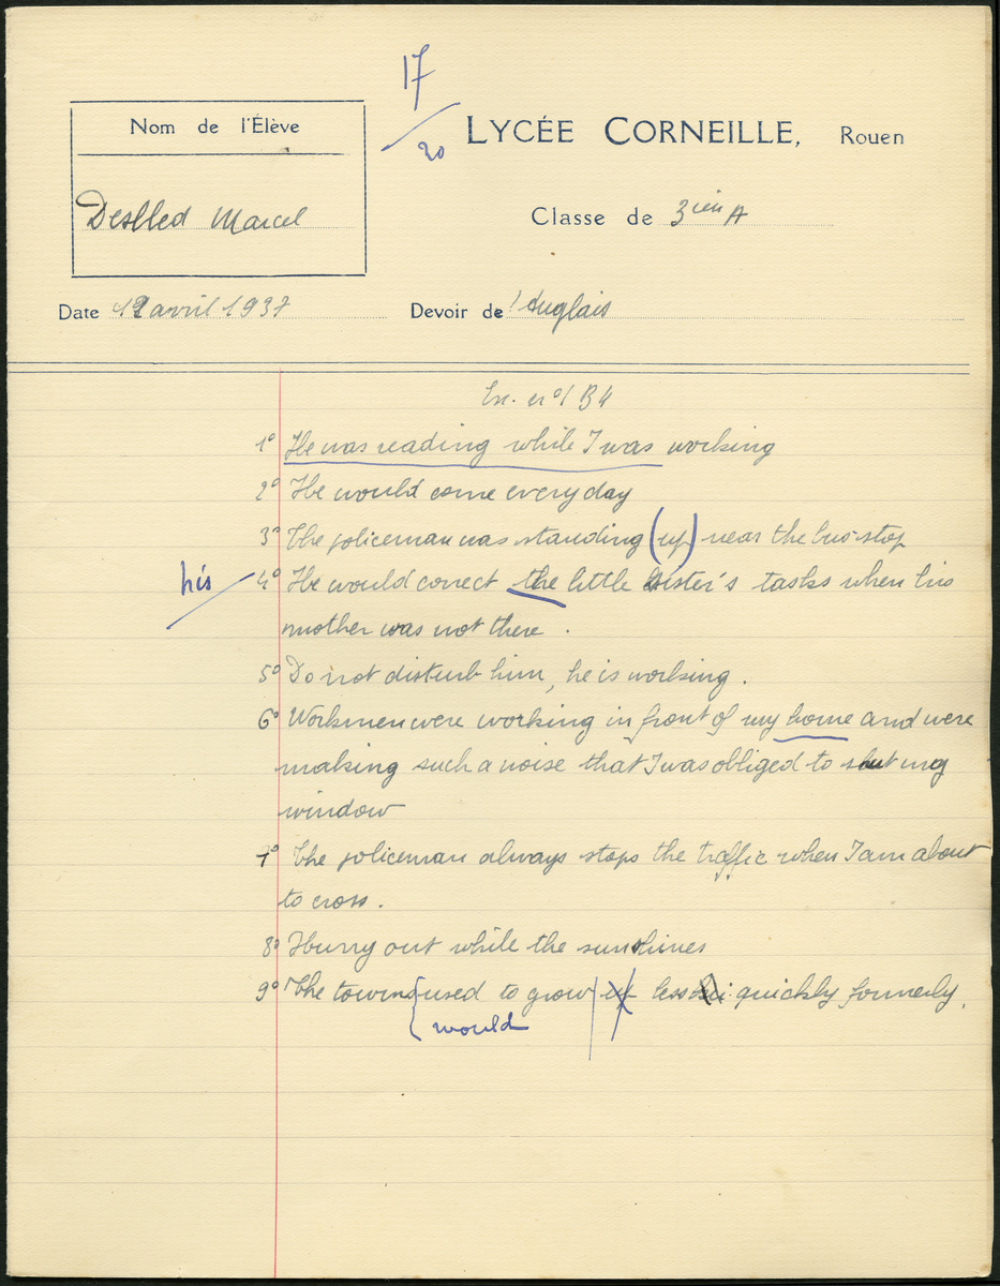 17
/20
Nom de l'Élève
LYCÉE CORNEILLE, Rouen
Marcel
Classe de 3ième A
Date 12 avril 1937
Devoir de l'Anglais
Ex. n° 1 B4
1° He was reading while I was working
2° He would come every day
3° The policeman was standing (up) near the bus-stop
his
4° He would correct the little sister's tasks when his
mother was not there.
5° Do not disturb him, he is working.
6° Workmen were working in front of my home and were
making such a noise that I was obliged to shut my
window
7° The policeman always stops the traffic when I am about
to cross.
8° Hurry out while the sun shines
9° The towns used to grow up less quickly formerly.
would